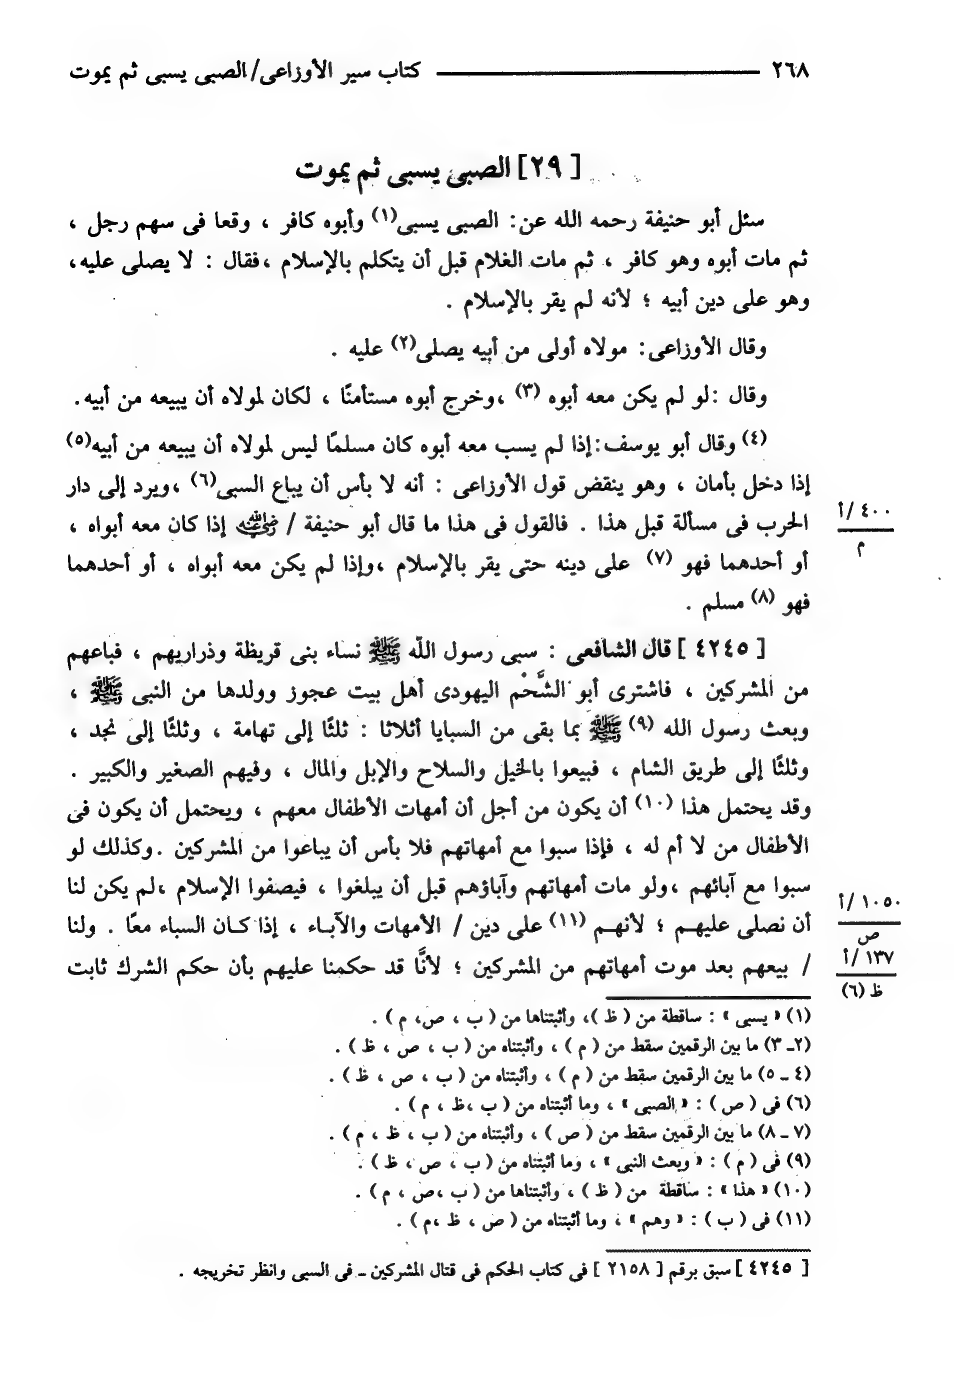 ٢٦٨ ـــــــــــــــــ كتاب سير الأوزاعى/ الصبى يسبى ثم يموت
[ ٢٩] الصبى يسبى ثم يموت
سئل أبو حنيفة رحمه الله عن: الصبى يسبى(١) وأبوه كافر ، وقعا فى سهم رجل ،
ثم مات أبوه وهو كافر ، ثم مات الغلام قبل أن يتكلم بالإسلام ،فقال : لا يصلى عليه،
وهو على دين أبيه ؛ لأنه لم يقر بالإسلام .
وقال الأوزاعى: مولاه أولى من أبيه يصلى(٢) عليه .
وقال :لو لم يكن معه أبوه (٣) ،وخرج أبوه مستأمنًا ، لكان لمولاه أن يبيعه من أبيه.
(٤) وقال أبو يوسف:إذا لم يسب معه أبوه كان مسلمًا ليس لمولاه أن يبيعه من أبيه(٥)
إذا دخل بأمان ، وهو ينقض قول الأوزاعى : أنه لا بأس أن يباع السبى(٦) ،ويرد إلى دار
الحرب فى مسألة قبل هذا . فالقول فى هذا ما قال أبو حنيفة / رضي الله عنه إذا كان معه أبواه ،
أو أحدهما فهو (٧) على دينه حتى يقر بالإسلام ،وإذا لم يكن معه أبواه ، أو أحدهما
فهو (٨) مسلم .
٤٠٠ /أ
م
[ ٤٢٤٥ ] قال الشافعى : سبى رسول الله ﷺ نساء بنى قريظة وذراريهم ، فباعهم
من المشركين ، فاشترى أبو الشَّحْم اليهودى أهل بيت عجوز وولدها من النبى ﷺ ،
وبعث رسول الله (٩) ﷺ بما بقى من السبايا أثلاثا : ثلثًا إلى تهامة ، وثلثًا إلى نجد ،
وثلثًا إلى طريق الشام ، فبيعوا بالخيل والسلاح والإبل والمال ، وفيهم الصغير والكبير .
وقد يحتمل هذا (١٠) أن يكون من أجل أن أمهات الأطفال معهم ، ويحتمل أن يكون فى
الأطفال من لا أم له ، فإذا سبوا مع أمهاتهم فلا بأس أن يباعوا من المشركين .وكذلك لو
سبوا مع آبائهم ،ولو مات أمهاتهم وآباؤهم قبل أن يبلغوا ، فيصفوا الإسلام ،لم يكن لنا
أن نصلى عليهـم ؛ لأنهـم (١١) على دين / الأمهات والآبـاء ، إذا كـان السباء معًا . ولنا
/ بيعهم بعد موت أمهاتهم من المشركين ؛ لأنَّا قد حكمنا عليهم بأن حكم الشرك ثابت
١٠٥٠ /أ
ص
١٣٧ /أ
ظ (٦)
(١) « يسبى » : ساقطة من ( ظ )، وأثبتناها من ( ب ، ص، م ) .
(٢ـ ٣) ما بين الرقمين سقط من ( م ) ، وأثبتناه من ( ب ، ص ، ظ ) .
(٤ ـ ٥) ما بين الرقمين سقط من ( م ) ، وأثبتناه من ( ب ، ص ، ظ ) .
(٦) فى ( ص ) : « الصبى » ، وما أثبتناه من ( ب ،ظ ، م ) .
(٧ ـ ٨) ما بين الرقمين سقط من ( ص ) ، وأثبتناه من ( ب ، ظ ، م ) .
(٩) فى ( م ) : « وبعث النبى » ، وما أثبتناه من ( ب ، ص ، ظ ) .
(١٠) « هذا » : ساقطة من ( ظ ) ، وأثبتناها من ( ب ،ص ، م ) .
(١١) فى ( ب ) : « وهم » ، وما أثبتناه من ( ص ، ظ ،م ) .
[ ٤٢٤٥ ] سبق برقم [ ٢١٥٨ ] فى كتاب الحكم فى قتال المشركين ـ فى السبى وانظر تخريجه .